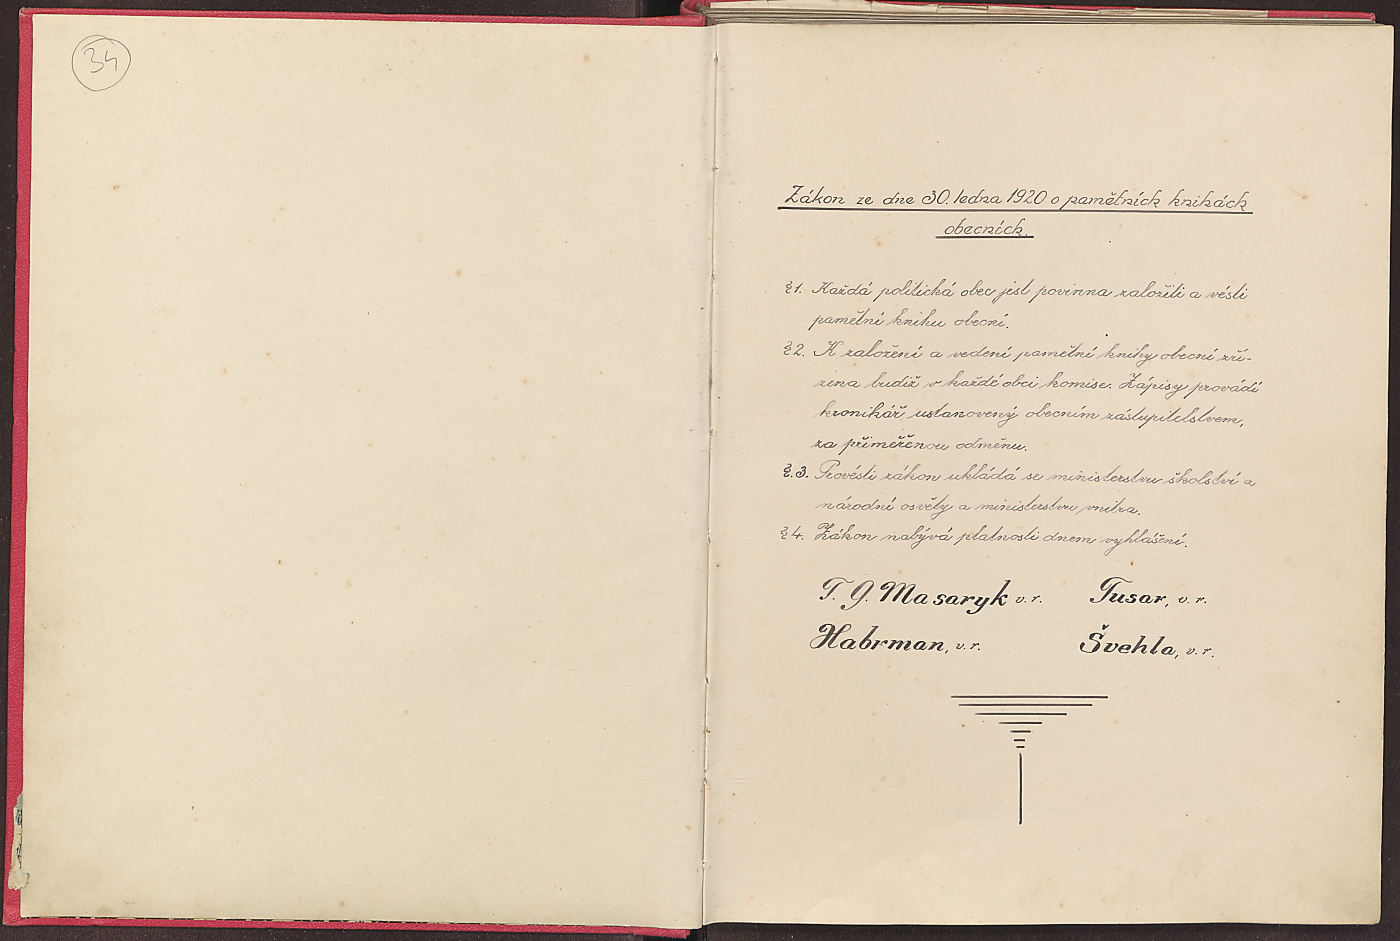 34
Zákon ze dne 30. ledna 1920 o pamětních knihách
obecních.
§1. Každá politická obec jest povinna založiti a vésti
pamětní knihu obecní.
§2. K založení a vedení pamětní knihy obecní zří-
zena budiž v každé obci komise. Zápisy provádí
kronikář ustanovený obecním zastupitelstvem,
za přiměřenou odměnu.
§.3. Provésti zákon ukládá se ministerstvu školství a
národní osvěty a ministerstvu vnitra.
§4. Zákon nabývá platnosti dnem vyhlášení.
T. G. Masaryk v. r. Tusar, v. r.
Habrman, v. r. Švehla, v. r.